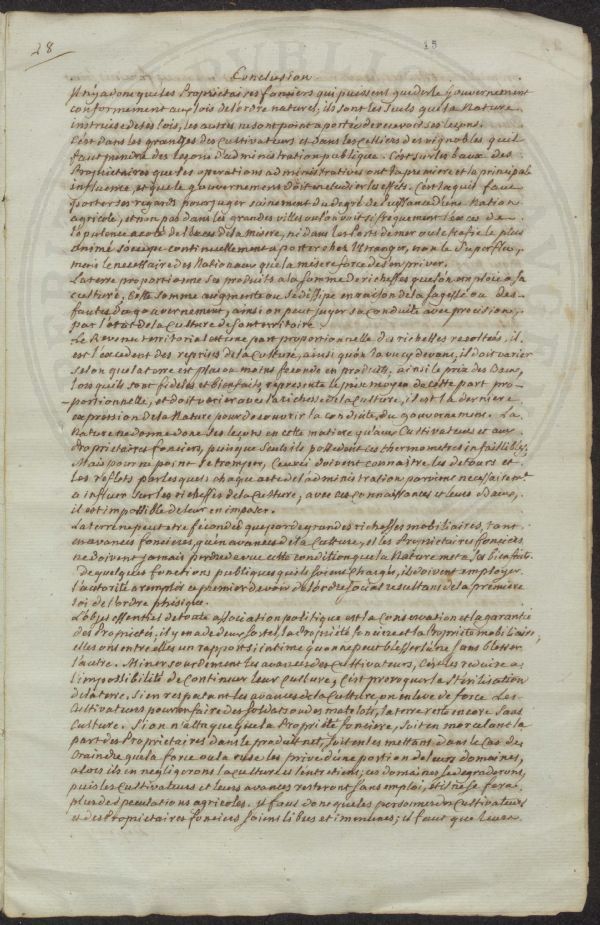 28
45
Conclusion
Il n'y a donc que les Propriétaires fonciers qui puissent guider le gouvernement
conformement aux lois de l'ordre naturel; ils sont les seuls que la Nature
instruise de ses lois, les autres ne sont point a portée de recevoir ses leçons.
C'est dans les granges des Cultivateurs et dans les Celliers des vignobles qu'il
faut prendre des leçons d'administration publique. C'est sur les baux des
Propriétaires que les operations administratives ont la premiere et la principale
influence, et que le gouvernement doit en etudier les effets. C'est la qu'il faut
porter ses regards pour juger sainement du degré de puissance d'une Nation
agricole, et non pas dans les grandes villes ou l'on voit si frequemment l'exces de
l'opulence a coté de l'exces de la Misere, ni dans les Ports de mer ou le trafic le plus
animé s'occupe continuellement a porter chez l'Etranger, non le Superflu,
mais le necessaire des Nationaux que la misere force de s'en priver.
La terre proportionne ses produits a la somme de richesses que l'on emploie a sa
culture, Cette somme augmente ou se dissipe en raison de la sagesse ou des
fautes du gouvernement, ainsi on peut juger sa conduite avec précision,
par l'état de la Culture de son territoire.
Le Revenu territorial est une part proportionnelle des richesses recoltées, il
est l'excedent des reprises de la Culture, ainsi qu'on l'a vu cy devant, il doit varier
selon que la terre est plus ou moins feconde en produits, ainsi le prix des Baux,
lorsqu'ils sont fideles et bienfaits, represente le prix moyen de cette part pro-
-portionnelle, et doit varier avec la richesse de la Culture, il est la derniere
expression de la Nature pour decouvrir la conduite du gouvernement. La
Nature ne donne donc ses leçons en cette matiere qu'aux Cultivateurs et aux
Propriétaires fonciers, puisque seuls ils possedent ces thermometres infaillibles.
Mais pour ne point se tromper, Ceux ci doivent connaitre les detours et
les reflets par lesquels chaque acte de l'administration parvient necessairement
a influer sur les richesses de la Culture, avec ces connaissances et leurs Baux,
il est impossible de leur en imposer.
La terre ne peut etre fécondée que par de grandes richesses mobiliaires, tant
en avances foncieres, qu'en avances de la Culture, et les Propriétaires fonciers
ne doivent jamais perdre de vue cette condition que la Nature met a ses bienfaits.
De quelques fonctions publiques qu'ils soient Chargés, ils doivent employer
l'autorité a remplir ce premier devoir de l'ordre social resultant de la premiere
loi de l'ordre phisique.
L'objet essentiel de toute association politique est la Conservation et la garantie
des Propriétés; il y en a de deux sortes, la Propriété fonciere et la Propriété mobiliaire;
elles ont entre elles un rapport si intime qu'on ne peut blesser l'une sans blesser
l'autre. Miner sourdement les avances des Cultivateurs, C'est les reduire a
l'impossibilité de Continuer leur Culture, C'est provoquer la Stérilisation
de la terre. Si en respectant les avances de la Culture on enleve de force les
Cultivateurs pour en faire des soldats ou des matelots, la terre reste encore sans
Culture. Si on n'attaque que la Propriété fonciere, soit en morcelant la
part des Propriétaires dans le produit net, soit en les mettant dans le Cas de
Craindre que la force ou la ruse les prive d'une portion de leurs domaines,
alors ils en negligeront la culture et l'entretien; ces domaines se degraderont,
puis les Cultivateurs et leurs avances resteront sans emploi, et il ne se fera
plus de speculations agricoles. Il faut donc que les personnes des Cultivateurs
et des Propriétaires fonciers soient libres et immunes; il faut que leurs